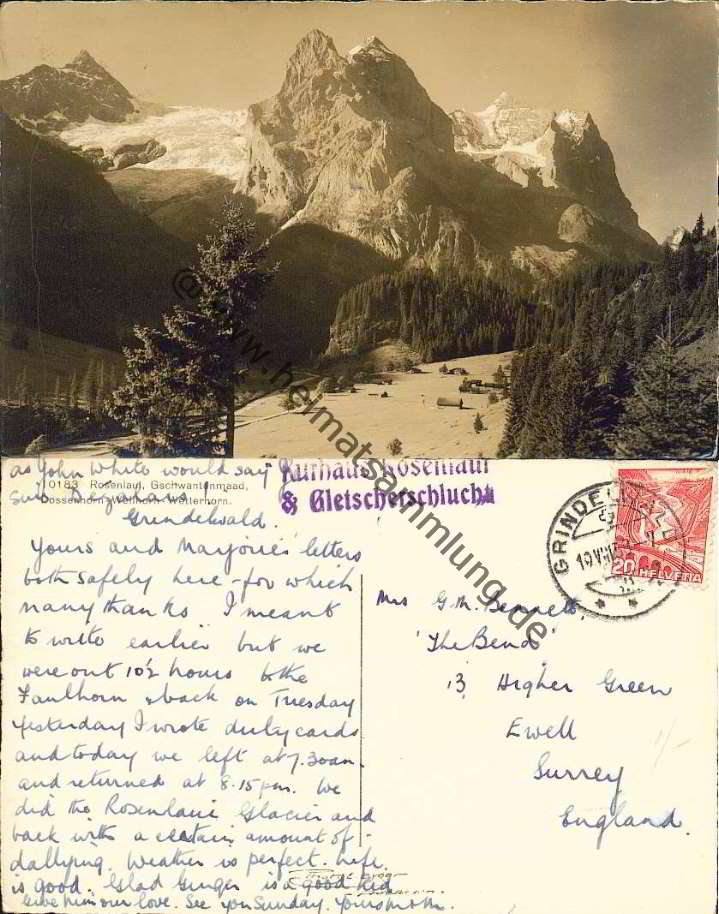 @ www.heimatsammlung.de
as John White would say
10183 Rosenlaui, Gschwantenmaad,
Dossenhorn, Wellhorn, Wetterhorn.
Kurhaus Rosenlaui
& Gletscherschlucht
GRINDELWALD
20 HELVETIA
Grindelwald.
Yours and Marjorie's letters
both safely here - for which
many thanks. I meant
to write earlier but we
were out 10½ hours to the
Faulhorn & back on Tuesday
yesterday I wrote duty cards
and today we left at 7.30am
and returned at 8.15pm. We
did the Rosenlaui Glacier and
back with a certain amount of
dallying. Weather is perfect. Life
is good. Glad Ginger is a good kid
Give him our love. See you Sunday. Yours
Mrs G.M. Bennett,
'The Bend'
13 Higher Green
Ewell
Surrey
England.
1/-